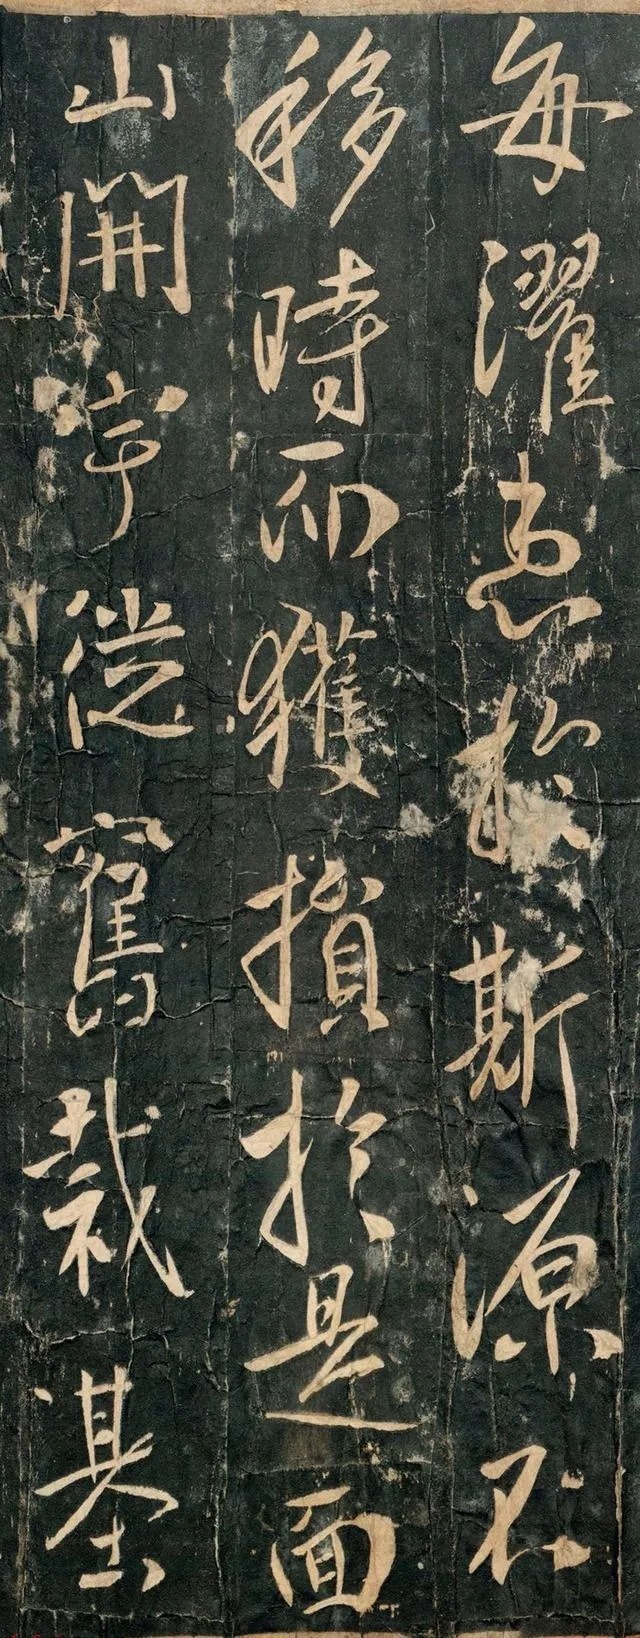 每濯患於斯源不
移時而獲損於是面
山開宇從舊裁基